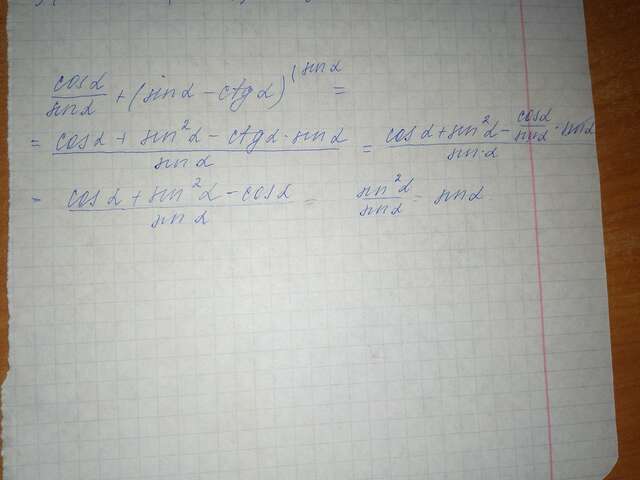 cosα/sinα + (sinα - ctgα)^(sinα =
= (cosα + sin²α - ctgα·sinα)/sinα = (cosα + sin²α - cosα/sinα · sinα)/sin·α
= (cosα + sin²α - cosα)/sinα = sin²α/sinα = sinα